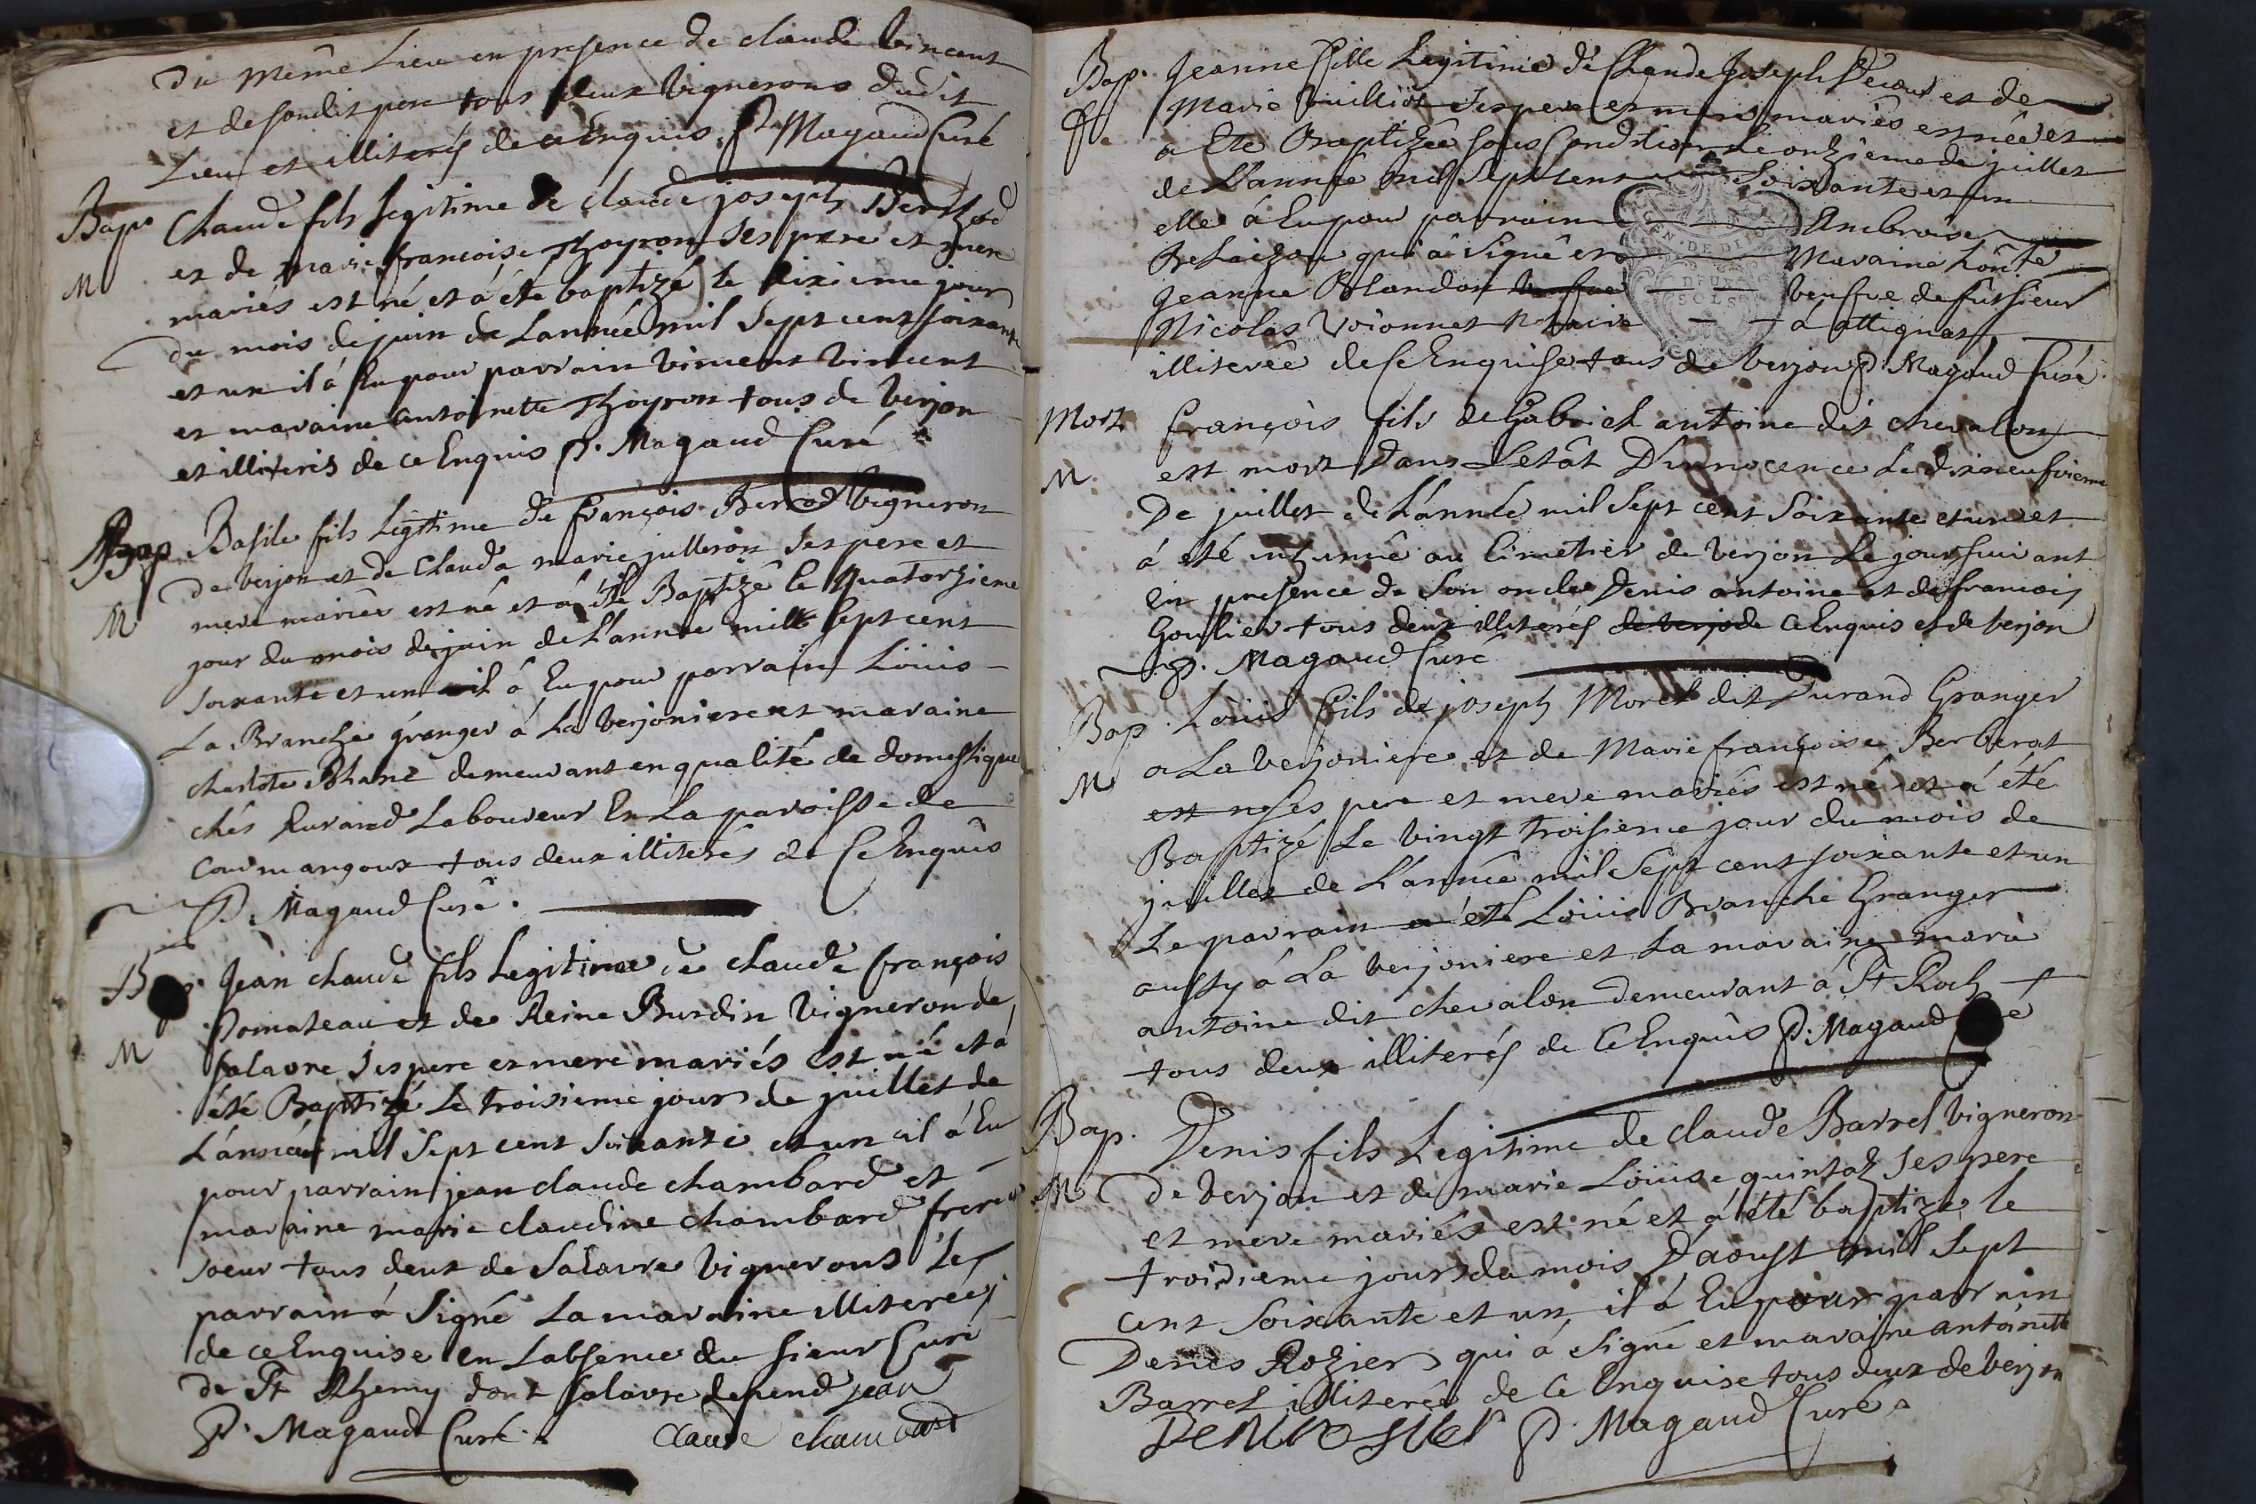 du même Lieu en presence de claude vincent
et de sondit pere tous deux vignerons dudit
Lieu et illiterés de ce Enquis P. Magaud Curé
Bap. Claude fils legitime de claude joseph Berthod
et de marie francoise Thoyron ses pere et mere
M
mariés est né et á été baptizé le sixieme jour
du mois de juin de Lannée mil Sept cent soixante
et un il á Eu pour parrain vincent vincent
et maraine antoinette Thoyron tous de Verjon
et illiterés de ce Enquis P. Magaud Curé
Bap Basile fils Legitime de françois Berrod vigneron
de verjon et de Clauda marie julleron ses pere et
M mere mariés est né et á été Baptizé le Quatorzieme
jour du mois de juin de L'année mille Sept cent
soixante et un il á Eu pour parrain Loüis
La Branche granger á La verjoniere et maraine
charlote demeurant en qualité de domestique
chés Laboureur En La paroisse de
Courmangoux tous deux illiterés de Ce Enquis
P. Magaud Curé.
Jean claude fils Legitime de claude françois
Pomateau et de Reine Burdin vigneron de
M Salavre ses pere et mere mariés est né et á
été Baptizé Le troisieme jour de juillet de
L'année mil Sept cent Soixante et un il á Eu
pour parrain jean claude chambard et
maraine marie claudine chambard frere et
soeur tous deux de Salavre vignerons Le
parrain á Signé La maraine illiterée
de ce Enquise en Labsence du Sieur Curé
de St Rhemy dont Salavre depend jean
P. Magaud Curé. claude chambard
Bap. Jeanne fille Legitime de Claude Joseph et de
Marie vuilliot ses pere et mere mariés est née et
a Eté Baptizée sous Condition Le onzieme de juillet
de L'année mil Sept cent Soixante et un
elle á Eu pour parrain Ambroise
qui á signé et Maraine hôn.te
Jeanne Blandon veufve de fût sieur
Nicolas Voionnet Notaire á attignat
illiterée de Ce Enquise tous de verjon P. Magaud Curé
Mort françois fils de Gabriel antoine dit chevalon
M. est mort Dans L'etât D'innocence Le dixneufvieme
De juillet de L'année mil Sept cent Soixante et un et
á été inhumé au Cimetier de verjon Le jour suivant
En presence de Son oncle Denis antoine et de francois
Goulier tous deux illiterés de verjo de Ce Enquis et de verjon
P. Magaud Curé
Bap. Loüis fils de joseph Morel dit Durand Granger
M a La verjoniere et de Marie françoise Berberat
est n ses pere et mere mariés est né et á été
Baptizé Le vingt troisieme jour du mois de
juillet de L'année mil Sept cent soixante et un
Le parrain a été Loüis Branche Granger
aussy á La verjoniere et La maraine marie
antoine dit chevalon demeurant á St Roch
tous deux illiterés de Ce Enquis P. Magaud
Bap. Denis fils Legitime de claude Barrel vigneron
M de verjon et de marie Loüise quintal ses pere
et mere mariés est né et á été baptizé le
troisieme jour du mois D'aoust mil Sept
cent Soixante et un il á Eu pour parrain
Denis Rozier qui á signé et maraine antoinette
Barrel illiterée de Ce Enquise tous deux de verjon
P. Magaud Curé